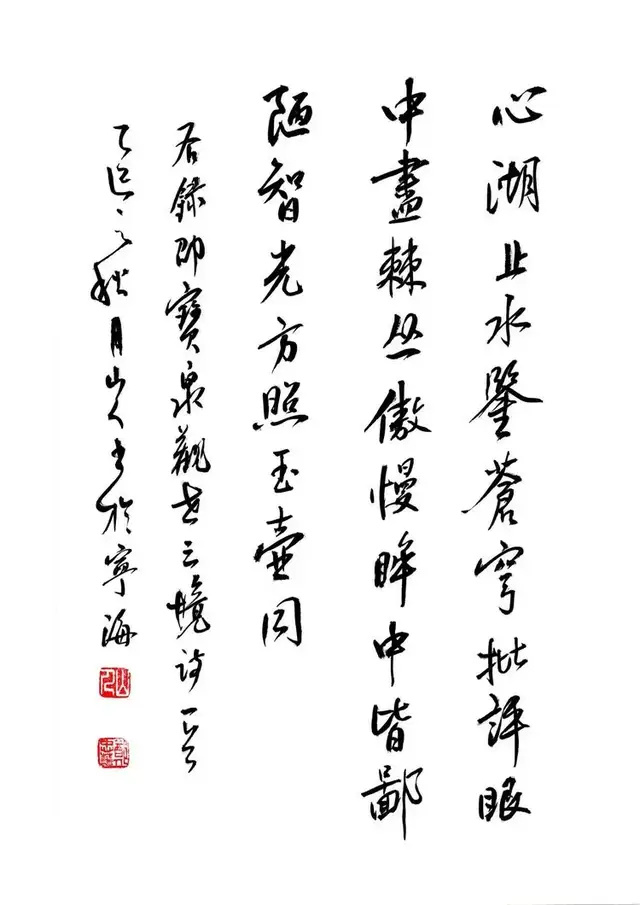 心湖止水鑒蒼穹批評眼
中盡棘丛傲慢眸中皆鄙
陋智光方照玉壺同
右錄即寶泉觀世之境诗一首
乙巳之秋月山人书於寧海
山人